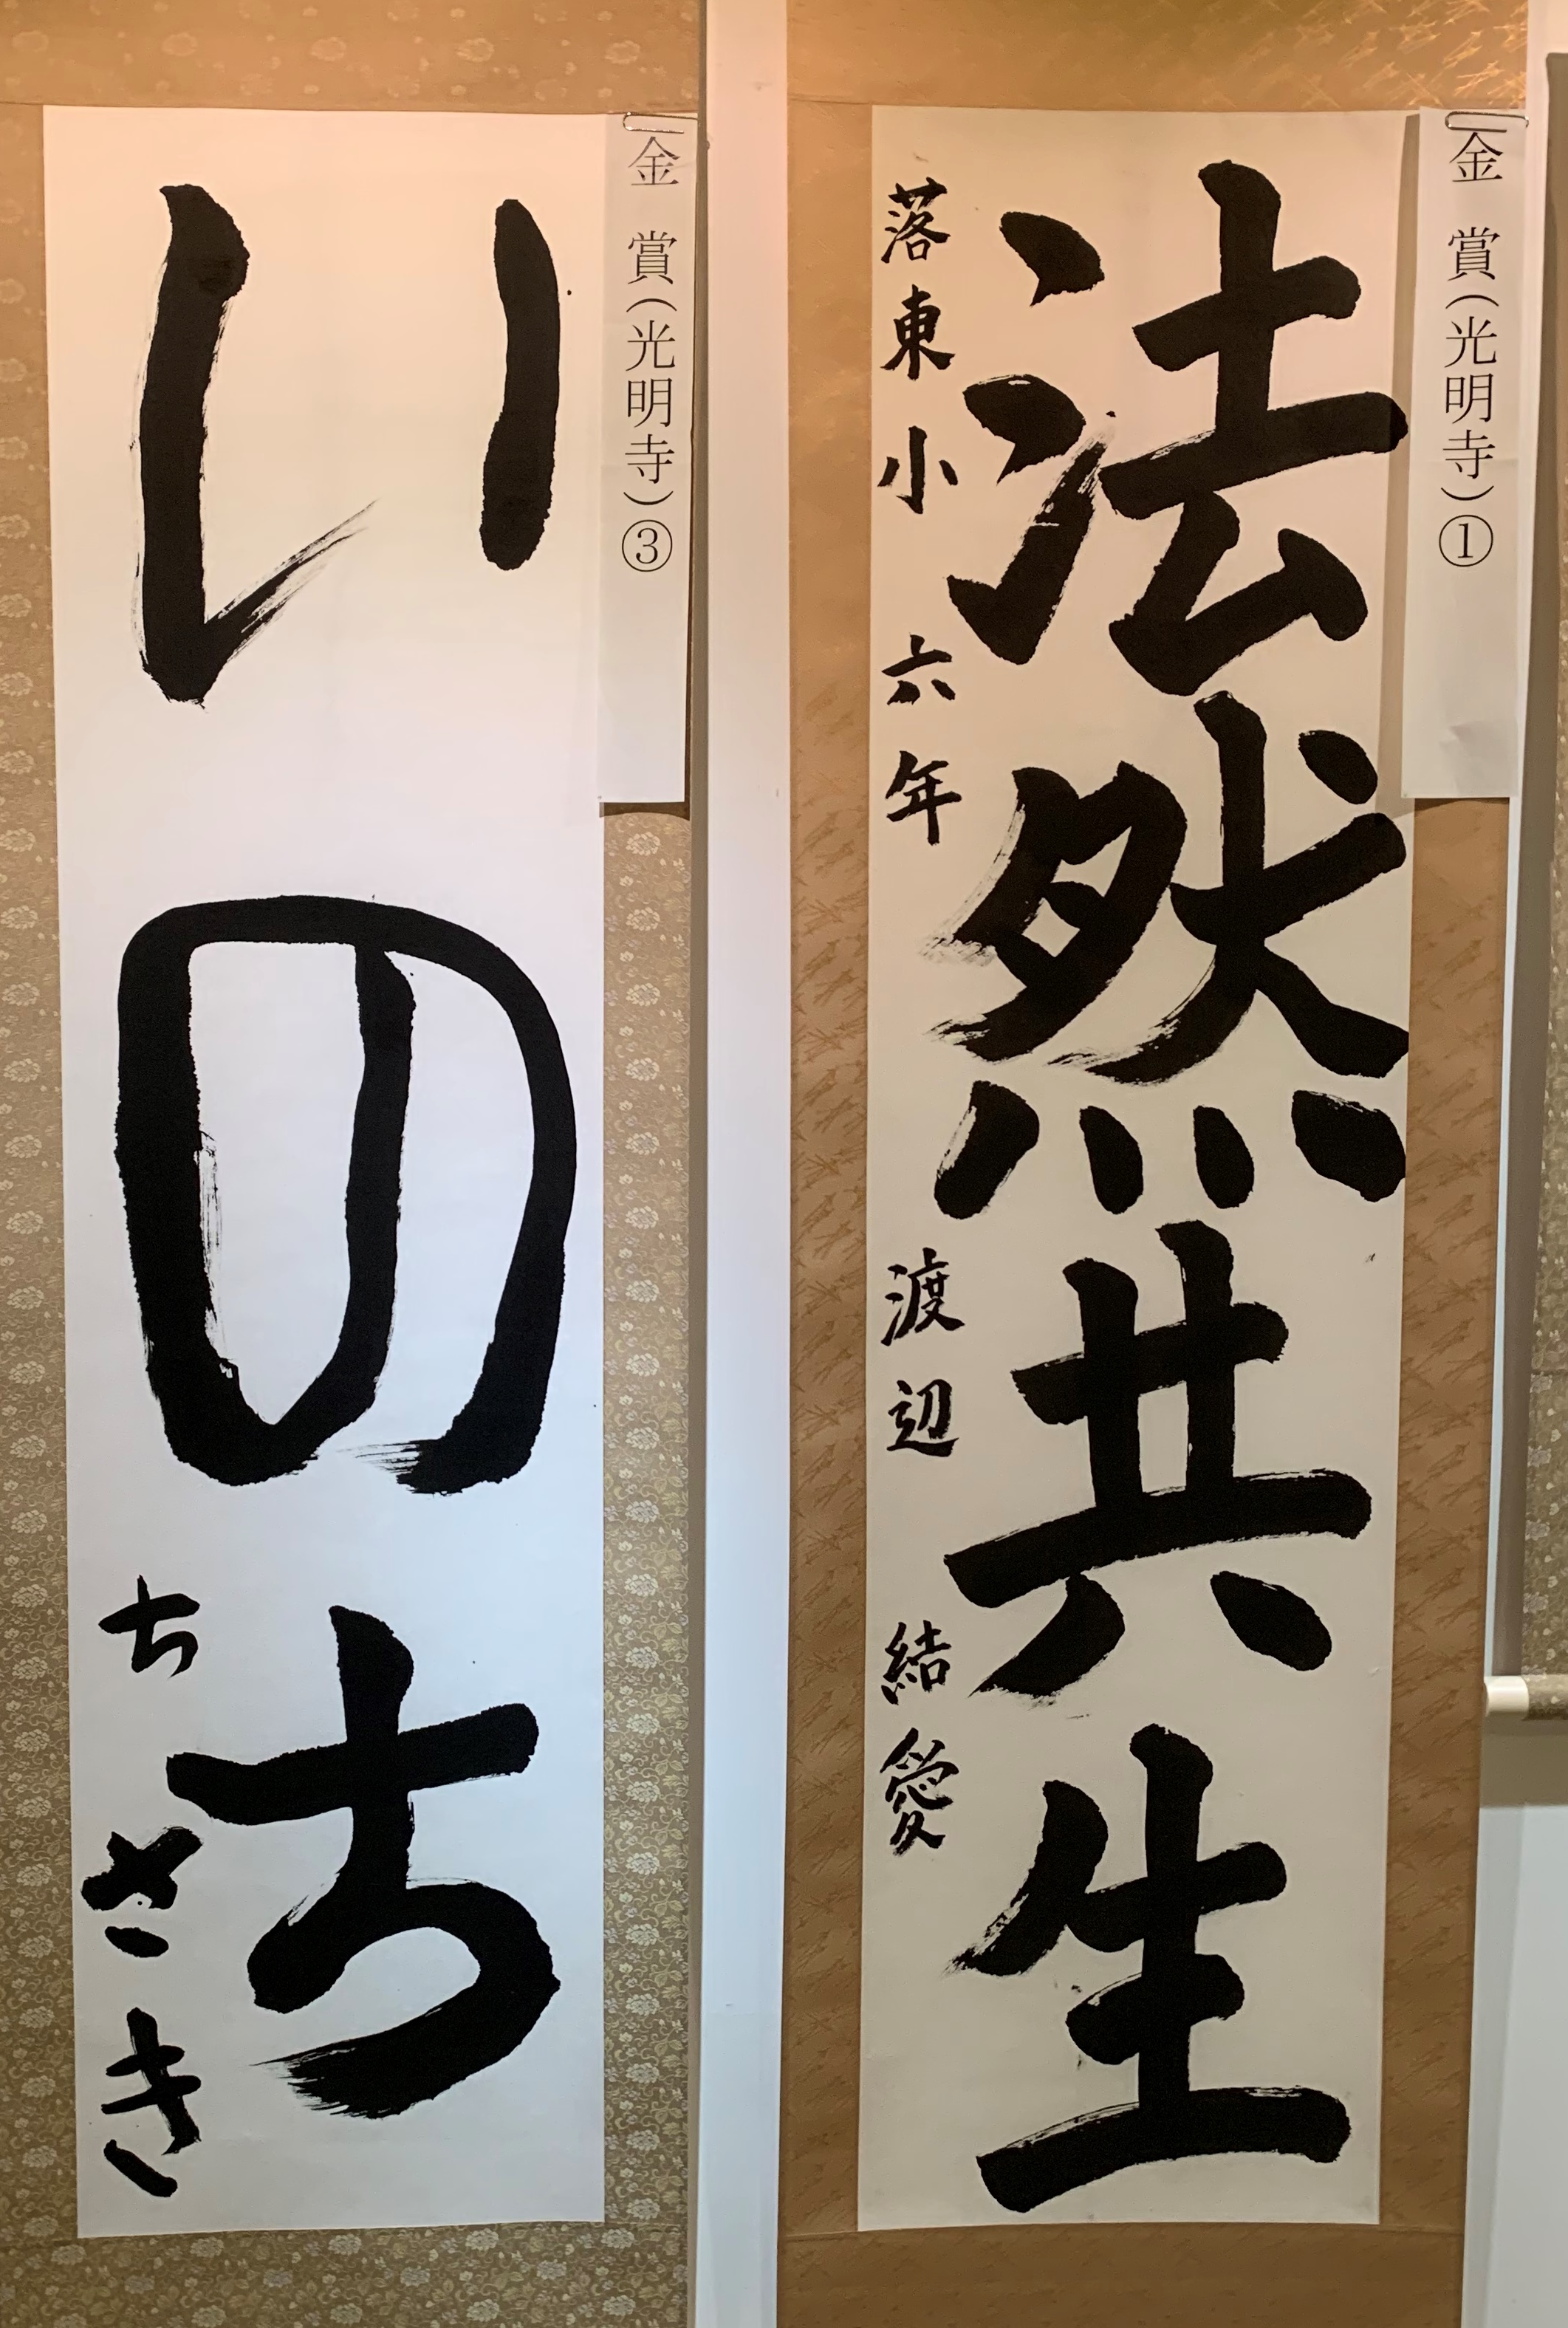 金賞(光明寺)①
法然共生
落東小 六年 渡辺 結愛
金賞(光明寺)③
いのち
ちさき